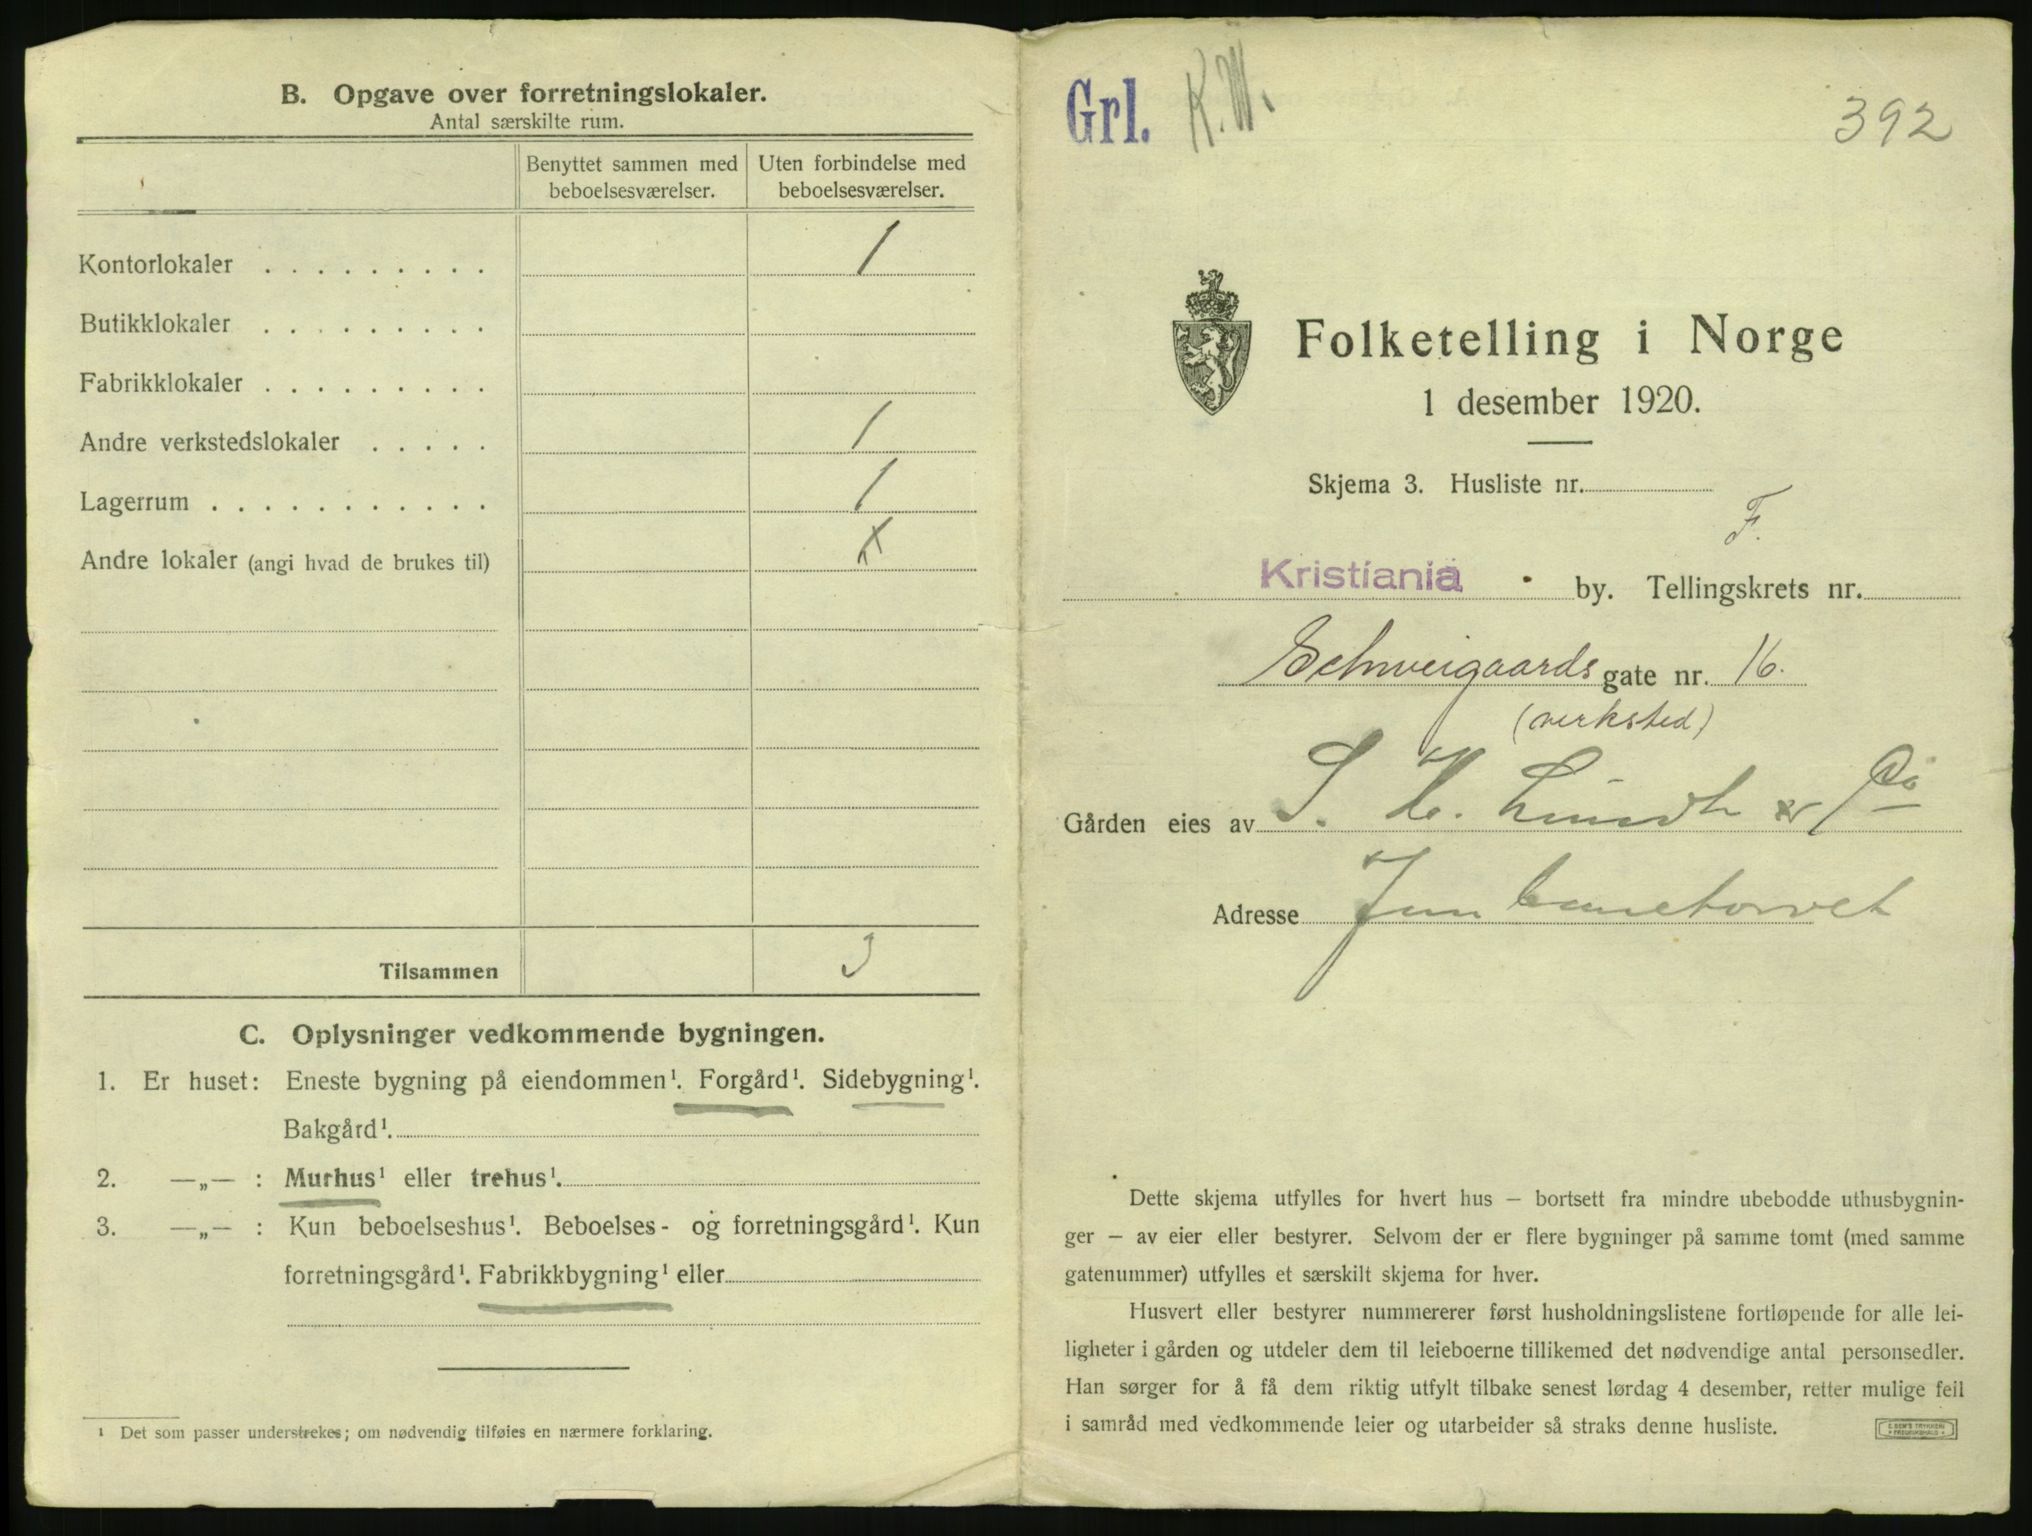 B. Opgave over forretningslokaler.
Antal særskilte rum.
Benyttet sammen med beboelsesværelser.
Uten forbindelse med beboelsesværelser.
Kontorlokaler . . . . . . . . . 1
Butikklokaler . . . . . . . . .
Fabrikklokaler . . . . . . . . .
Andre verkstedslokaler . . . . . 1
Lagerrum . . . . . . . . . . . 1
Andre lokaler (angi hvad de brukes til) x
Tilsammen 3
C. Oplysninger vedkommende bygningen.
1. Er huset: Eneste bygning på eiendommen¹. Forgård¹. Sidebygning¹.
Bakgård¹.
2. —„— : Murhus¹ eller trehus¹.
3. —„— : Kun beboelseshus¹. Beboelses- og forretningsgård¹. Kun
forretningsgård¹. Fabrikkbygning¹ eller
¹ Det som passer understrekes; om nødvendig tilføies en nærmere forklaring.
Grl. K.W.
392
Folketelling i Norge
1 desember 1920.
Skjema 3. Husliste nr.
F.
Kristiania by. Tellingskrets nr.
Schweigaards gate nr. 16.
(verksted)
Gården eies av S. H. Lundh & Co
Adresse Jernbanetorvet
Dette skjema utfylles for hvert hus – bortsett fra mindre ubebodde uthusbygnin-
ger – av eier eller bestyrer. Selvom der er flere bygninger på samme tomt (med samme
gatenummer) utfylles et særskilt skjema for hver.
Husvert eller bestyrer nummererer først husholdningslistene fortløpende for alle lei-
ligheter i gården og utdeler dem til leieboerne tillikemed det nødvendige antal personsedler.
Han sørger for å få dem riktig utfylt tilbake senest lørdag 4 desember, retter mulige feil
i samråd med vedkommende leier og utarbeider så straks denne husliste.